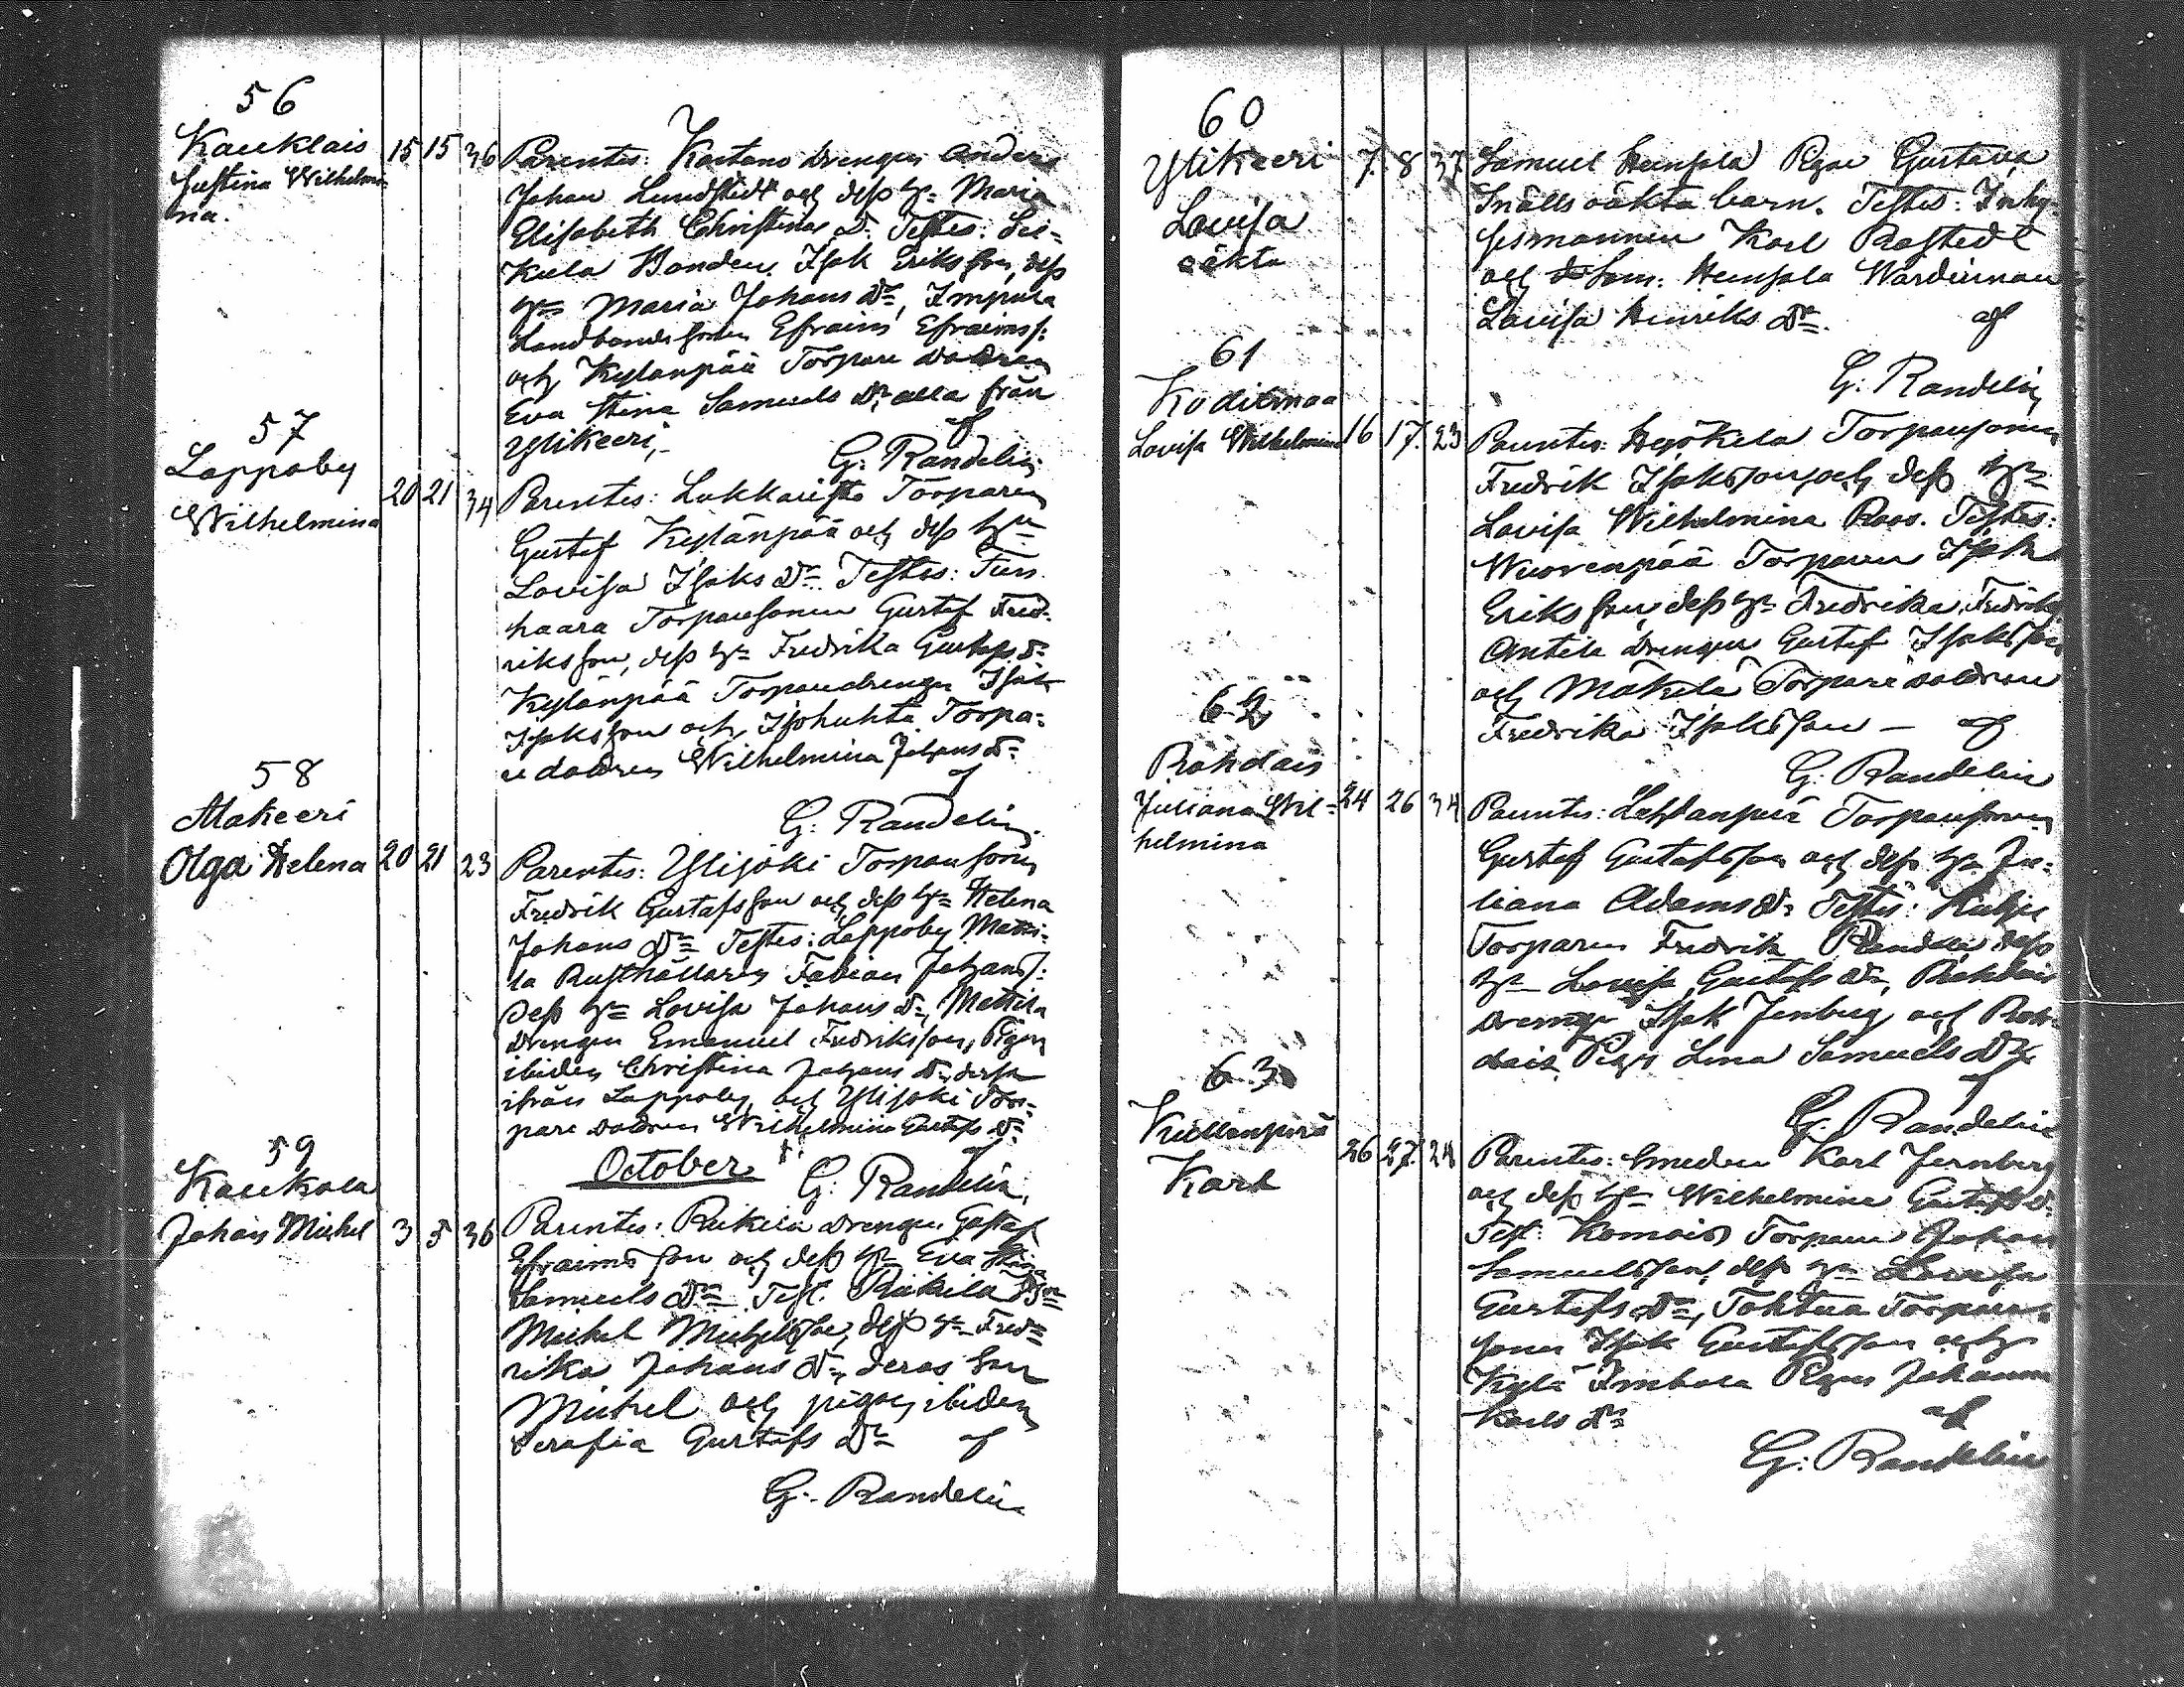 56
Kauklais
Justina Wilhelmi-
na.
15 15 36
Parentes: Kastano drengen Anders
Johan Lundstedt och dess h:u Maria
Elisabeth Christinas D: Testes: Sil-
kula Bonden Isak Eriksson, dess
h:u Maria Johans Dr, Impola
Landbondesonen Efraim Efraimss:
och Kylänpää Torpare dottren
Eva Stina Samuels Dr, alla från
Ylikeeri,
af
G: Randelin
57
Lappoby
Wilhelmina
20 21 34
Parentes: Lukkariste Torparen
Gustaf Kylänpää och dess h:u
Lovisa Isaks Dr Testes:
haara Torparesonen Gustaf Fred-
riksson, dess h:u Fredrika Gustafs Dr
Kylänpää Torparedrengen Isak
Isaksson och Isohuhta Torpa-
re dottren Wilhelmina Johans Dr
af
G: Randelin.
58
Alakeeri
Olga Helena
20 21 23
Parentes: Ylijoki Torparesonen
Fredrik Gustafsson och dess h:u Helena
Johans Dr Testes: Lappoby Matti-
la Rusthållaren Fabian Johanss:
dess h:u Lovisa Johans Dr, Mattila
drengen Emanuel Fredriksson, Pigan
ibidem Christina Johans Dr, dessa
ifrån Lappoby och Ylijoki Tor-
pare dottren Wilhelmina Gustafs Dr
af
October
G: Randelin,
59
Kaukola
Johan Mickel
3 5 36
Parentes: Riikilä drengen Gustaf
Efraimsson och dess h:u Eva Stina
Samuels Dr Test. Riikilä
Mickel Michelsson, dess h:u Fred-
rika Johans Dr, deras son
Mickel och pigan ibidem
Serafia Gustafs Dr af
G: Randelin
60
Ylikeeri
Lovisa
oäkta
7. 8 37
Samuel Hempla Pigan Gustava
Snälls oäkta barn. Testes: Inhy-
sesmannen Karl Rostedt
och Som: Hempla Wärdinnan
Lovisa Henriks Dr. af
G: Randelin
61
Kodismaa
Lovisa Wilhelmina
16 17. 23
Parentes: Torparesonen
Fredrik Isaksson och dess h:u
Lovisa Wilhelmina Roos. Testes:
Wuorenpää Torparen Isak
Eriksson, dess h:u Fredrika Fredriks
Antila drengen Gustaf Isaksson
och Mäkilä Torpare dottren
Fredrika Isaksson — af
G: Randelin
62
Rohdais
Juliana Wil-
helmina
24 26 34
Parentes: Torparesonen
Gustaf Gustafsson och dess h:u Ju-
liana Adams Dr Testes:
Torparen Fredrik Randelin dess
h:u Lovisa Gustafs Dr, Rohdais
drengen Isak Jernberg och Roh-
dais Pigan Lena Samuels Dr
af
G: Randelin
63
Kullanperä
Karl
26 27. 24
Parentes: Smeden Karl Jernberg
och dess h:u Wilhelmina Gustafs D:
Test: Komois Torparen Johan
Samuelsson, dess h:u Lovisa
Gustafs Dr, Tohtua Torpare-
sonen Isak Gustafsson och
Kylä Imbola Pigan Johanna
Karls Dr
af
G: Randelin